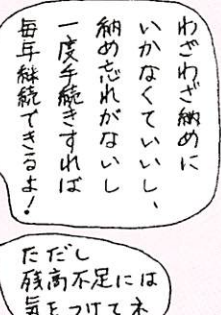 わざわざ納めに
いかなくていいし、
納め忘れがないし
一度手続きすれば
毎年継続できるよ！
ただし
残高不足には
気をつけてネ